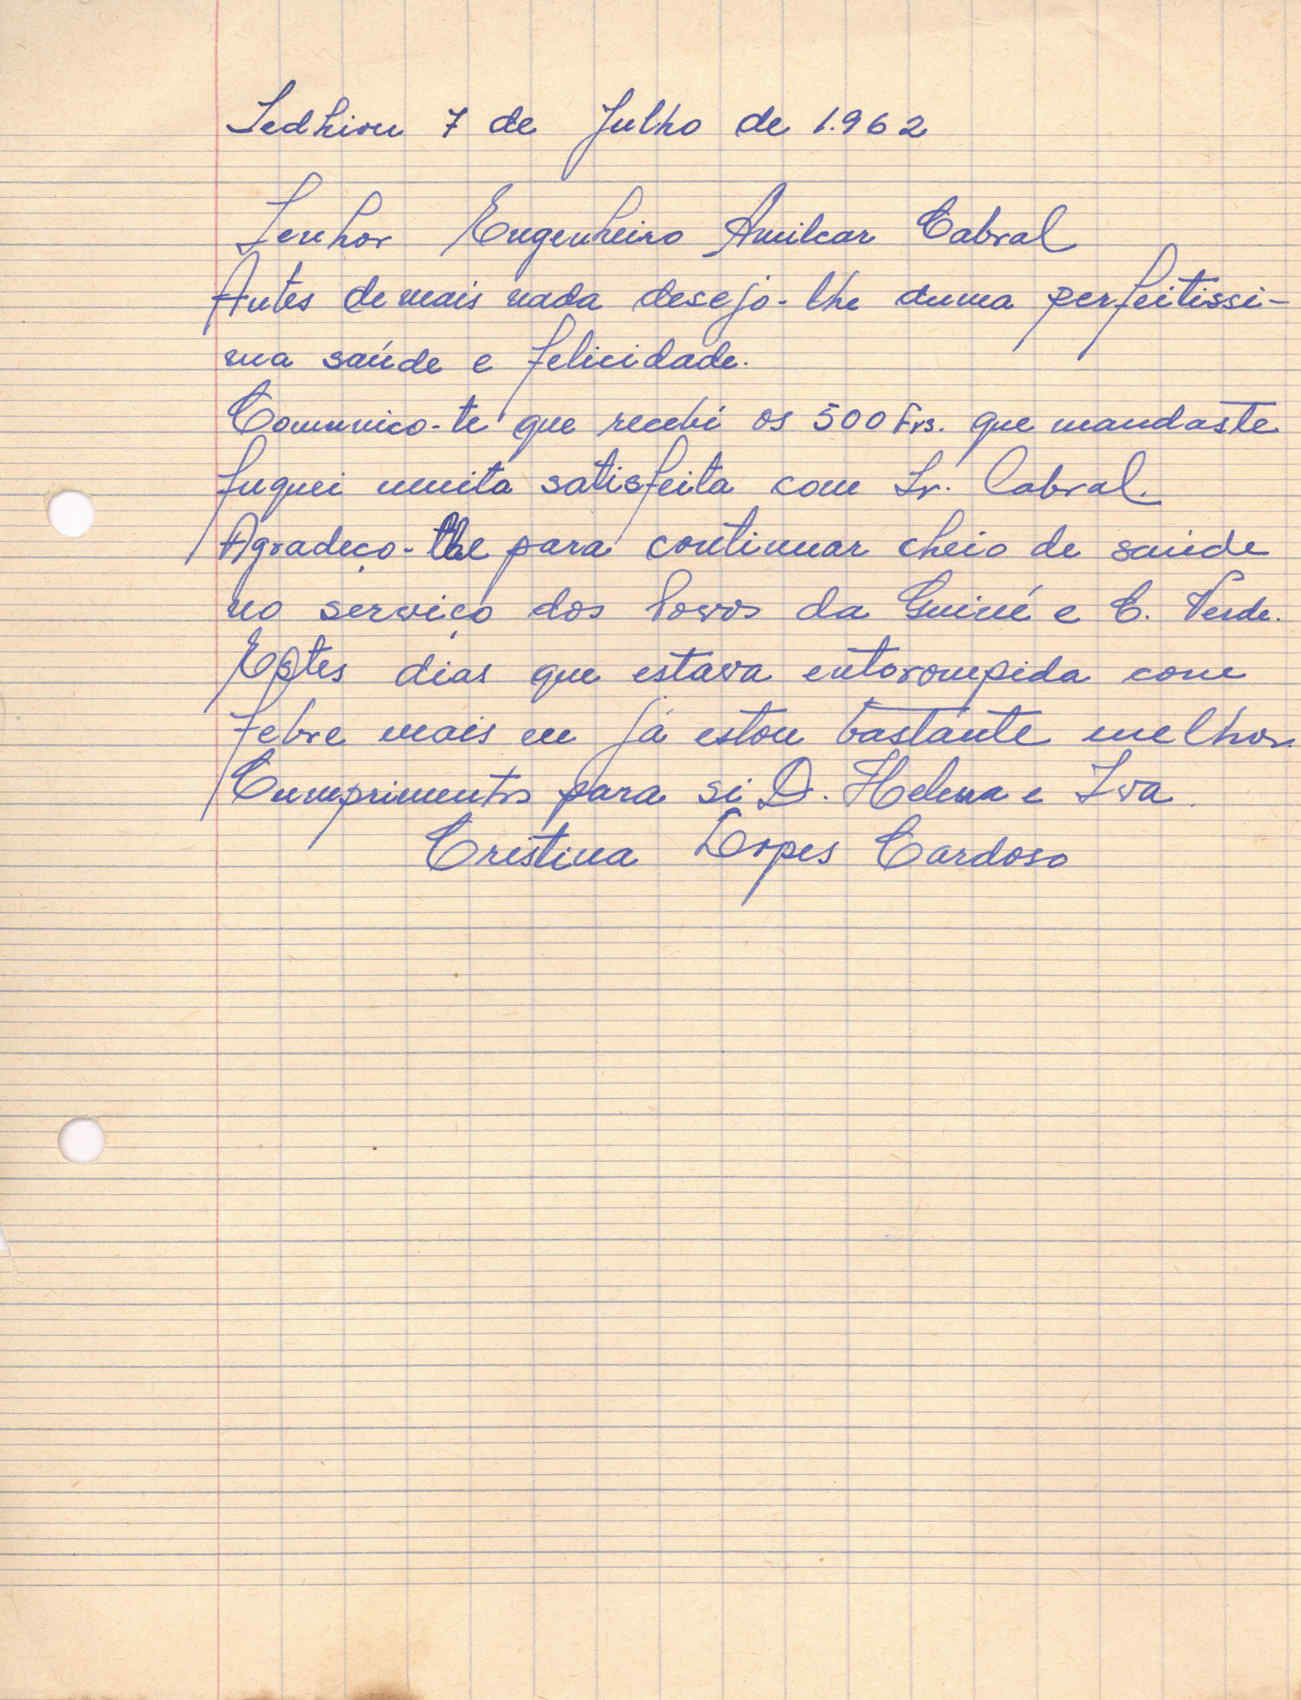 Sedhiou 7 de Julho de 1.962
Senhor Engenheiro Amilcar Cabral
Antes de mais nada desejo-lhe duma perfeitissi-
ma saúde e felicidade.
Comunico-te que recebi os 500 Frs. que mandaste
fuquei muita satisfeita com Sr. Cabral.
Agradeço-lhe para continuar cheio de saúde
no serviço dos Povos da Guiné e C. Verde.
Estes dias que estava entorompida com
febre mais eu já estou bastante melhor.
Cumprimentos para si D. Helena e Iva.
Cristina Lopes Cardoso